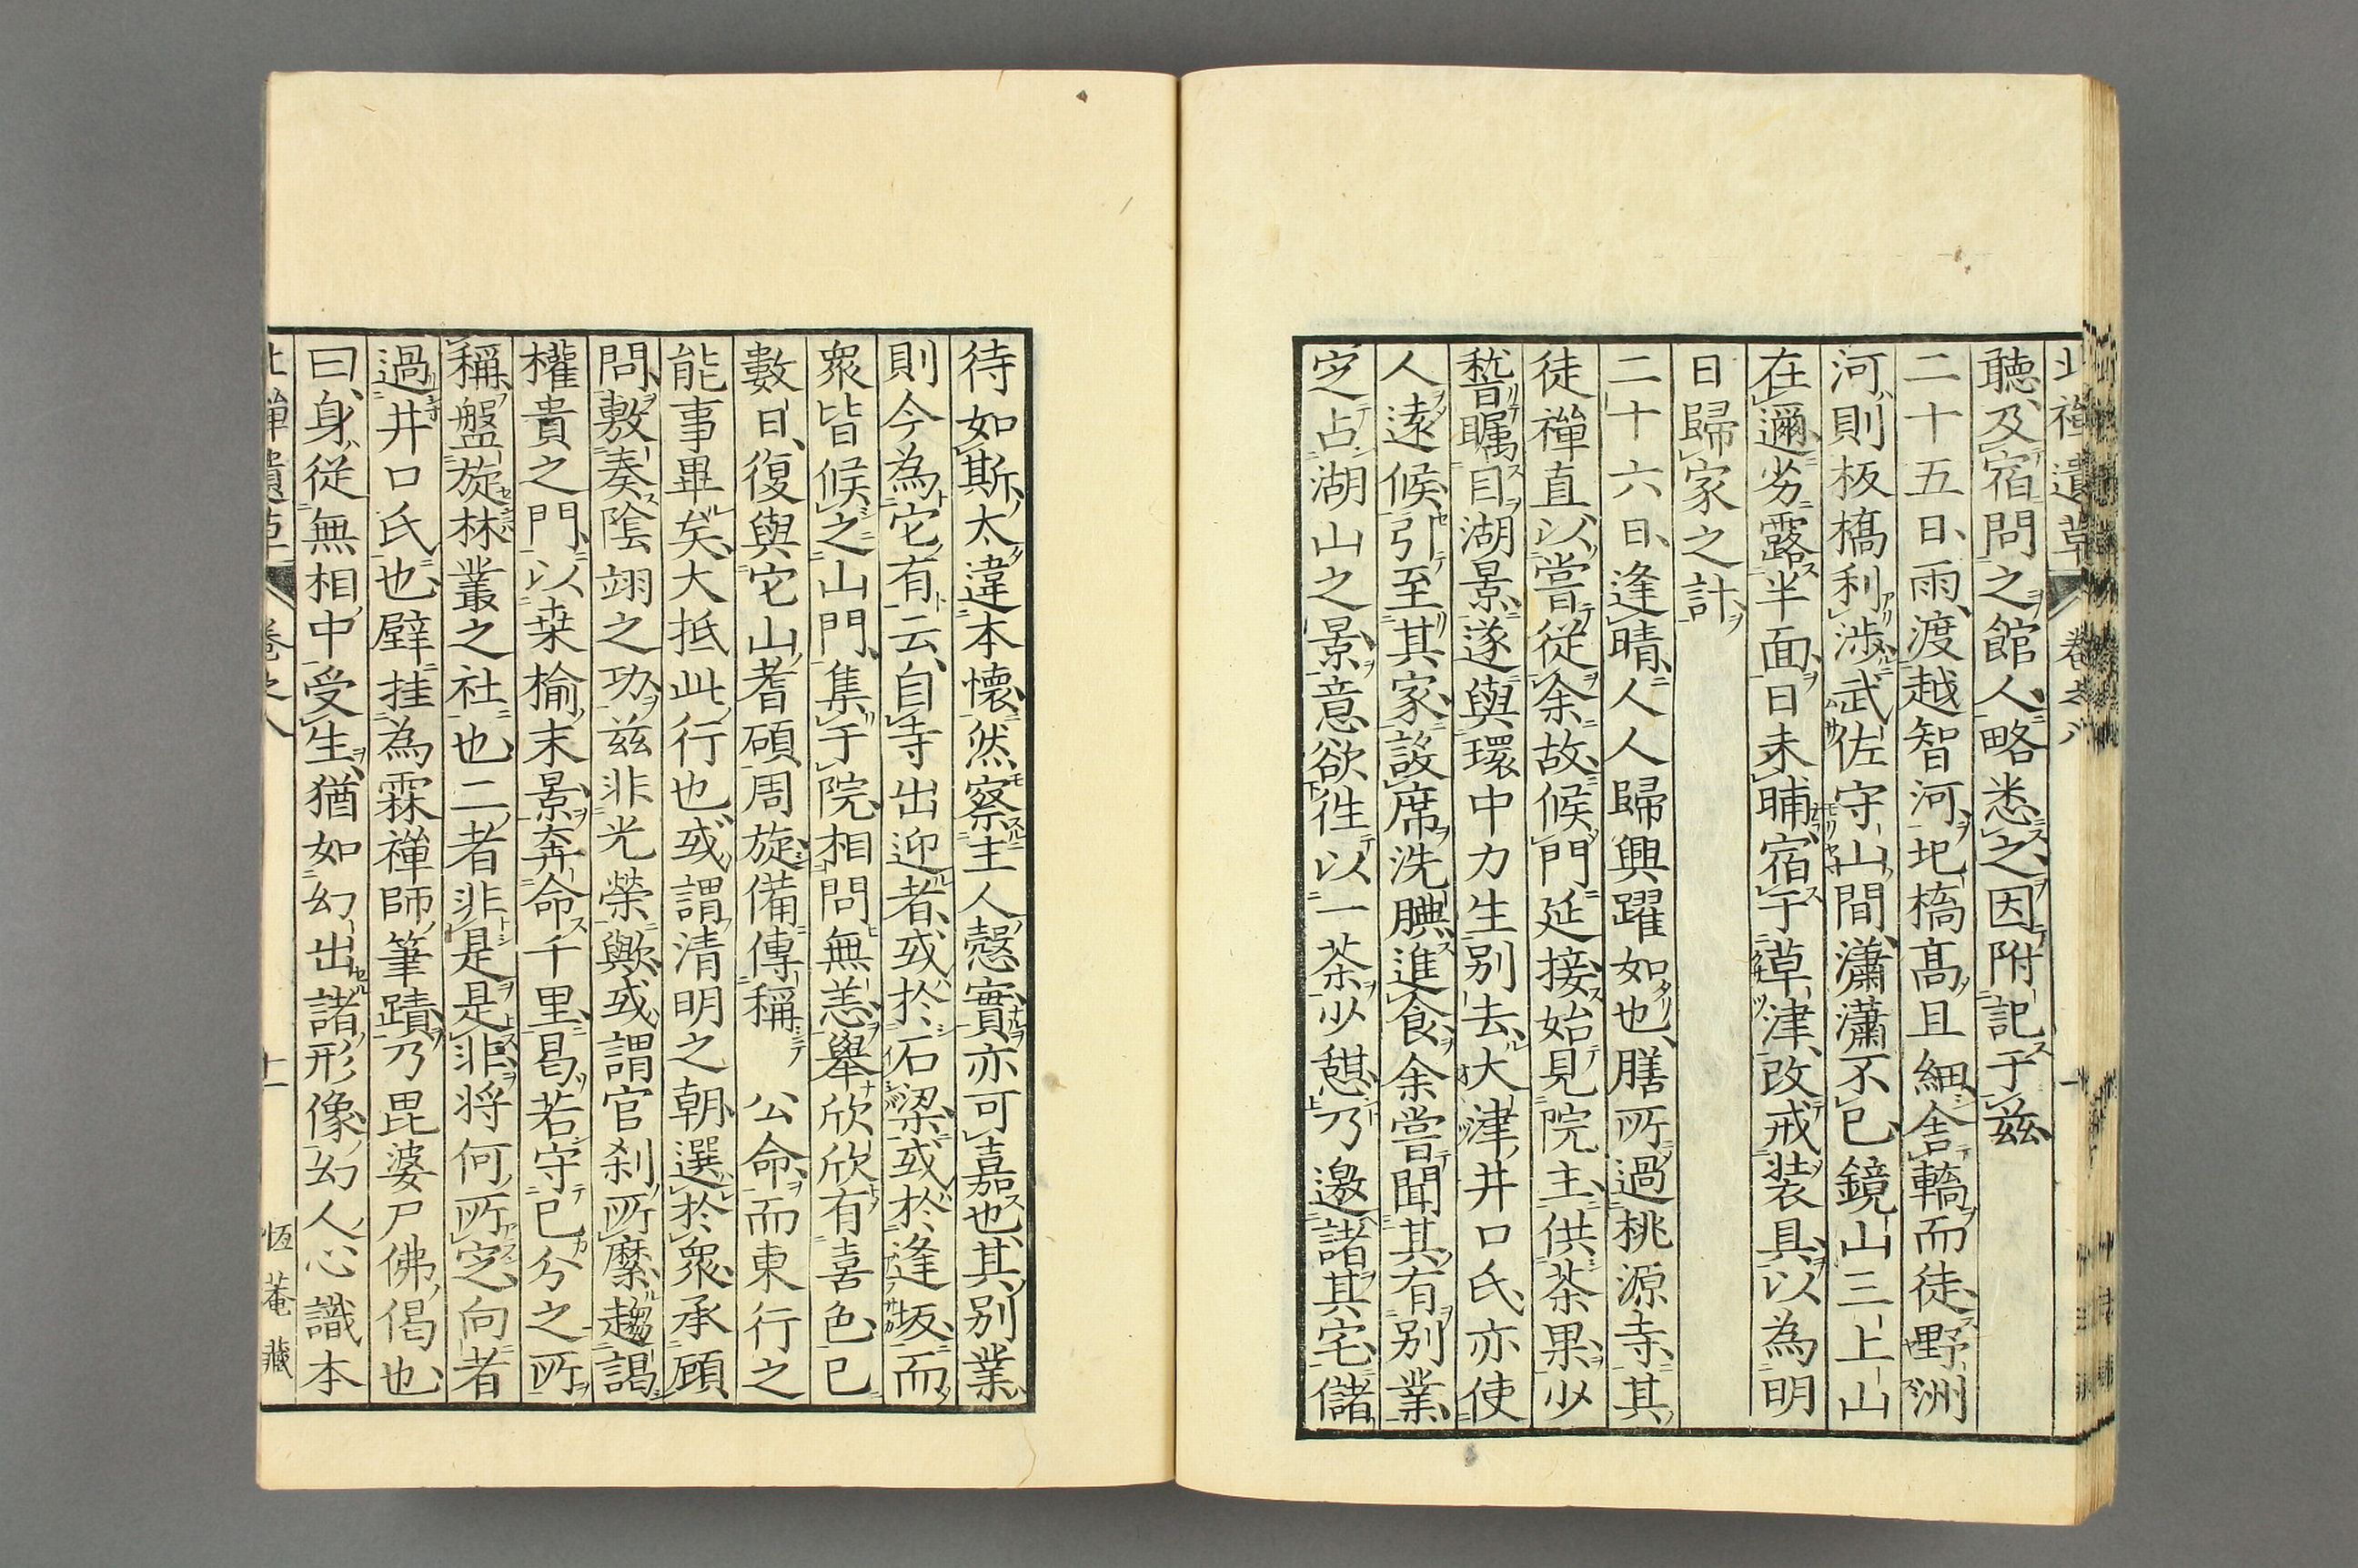 北禪遺草 卷之八
聽及宿問之館人略悉之因附記于茲
二十五日雨渡越智河圯橋高且細舍轎而徒野洲
河則板橋利涉武佐守山間瀟瀟不已鏡山三上山
在邇劣露半面日未晡宿于草津改戒装具以為明
日歸家之計
二十六日逢晴人人歸興躍如也膳所過桃源寺其
徒禪直以嘗從余故候門延接始見院主供茶果少
嵆矚目湖景遂與環中力生別去大津井口氏亦使
人遠候引至其家設席洗腆進食余嘗聞其有別業
定占湖山之景意欲徃以一茶少憇乃邀諸其宅儲
待如斯太違本懷然察主人慤實亦可嘉也其別業
則今為它有云自寺出迎者或於石梁或於逢坂而
衆皆候之山門集于院相問無恙舉欣欣有喜色已
數日復與它山耆碩周旋備傳稱 公命而東行之
能事畢矣大抵此行也或謂清明之朝選於衆承顧
問敷奏陰翊之功茲非光榮歟或謂官刹所縻趨謁
權貴之門以桒榆末景奔命千里曷若守已分之所
稱盤旋林叢之社也二者非是是非将何所定向者
過井口氏也壁挂為霖禅師筆蹟乃毘婆尸佛偈也
曰身從無相中受生猶如幻出諸形像幻人心識本
北禪遺草 卷之八 十一 恆菴藏